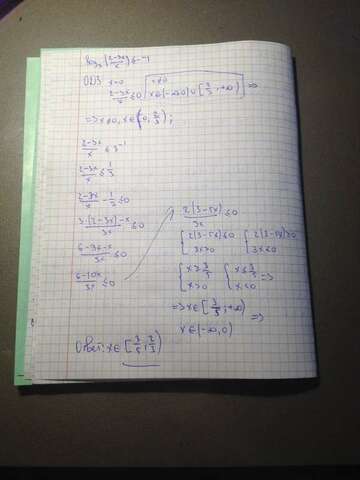 log₃(2-3x/x) ≤ -1
ОДЗ x≠0
2-3x/x ≤0 | x≠0 x∈(-∞;0)∪[3/5;+∞) ⇒
⇒ x≠0, x∈(0,2/3);
2-3x/x ≤ 3⁻¹
2-3x/x ≤ 1/3
2-3x/x - 1/3 ≤0
3·(2-3x)-x/3x ≤0
6-9x-x/3x ≤0
6-10x/3x ≤0
2(3-5x)/3x ≤0
{2(3-5x)≤0 {2(3-5x)≥0
3x>0 3x<0
{x≥3/5 {x≤3/5 ⇒
x>0 x<0
⇒ x∈[3/5;+∞)
x∈(-∞,0) ⇒
Ответ: x∈[3/5;2/3)